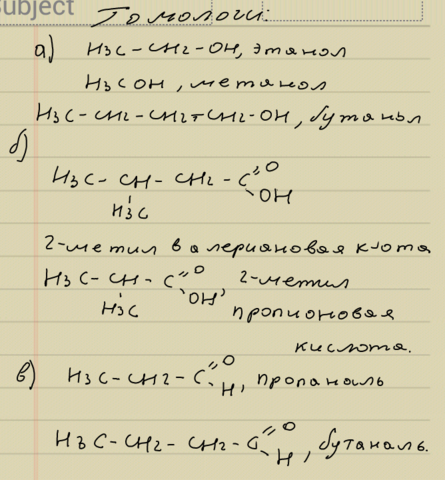 Subject
Гомологи:
а) H3C-CH2-OH, этанол
H3COH, метанол
H3C-CH2-CH2-CH2-OH, бутанол
б)
H3C-CH-CH2-C=O
OH
H3C
2-метил валериановая к-ота
H3C-CH-C=O
OH, 2-метил
H3C
пропионовая
кислота.
в) H3C-CH2-C=O
H, пропаналь
H3C-CH2-CH2-C=O
H, бутаналь.